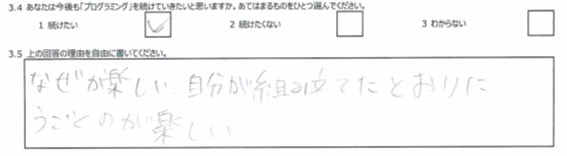 3.4 あなたは今後も「プログラミング」を続けていきたいと思いますか。あてはまるものをひとつ選んでください。
1 続けたい 2 続けたくない 3 わからない
3.5 上の回答の理由を自由に書いてください。
なぜが楽しい、自分が組み立てたとおりに
うごくのが楽しい